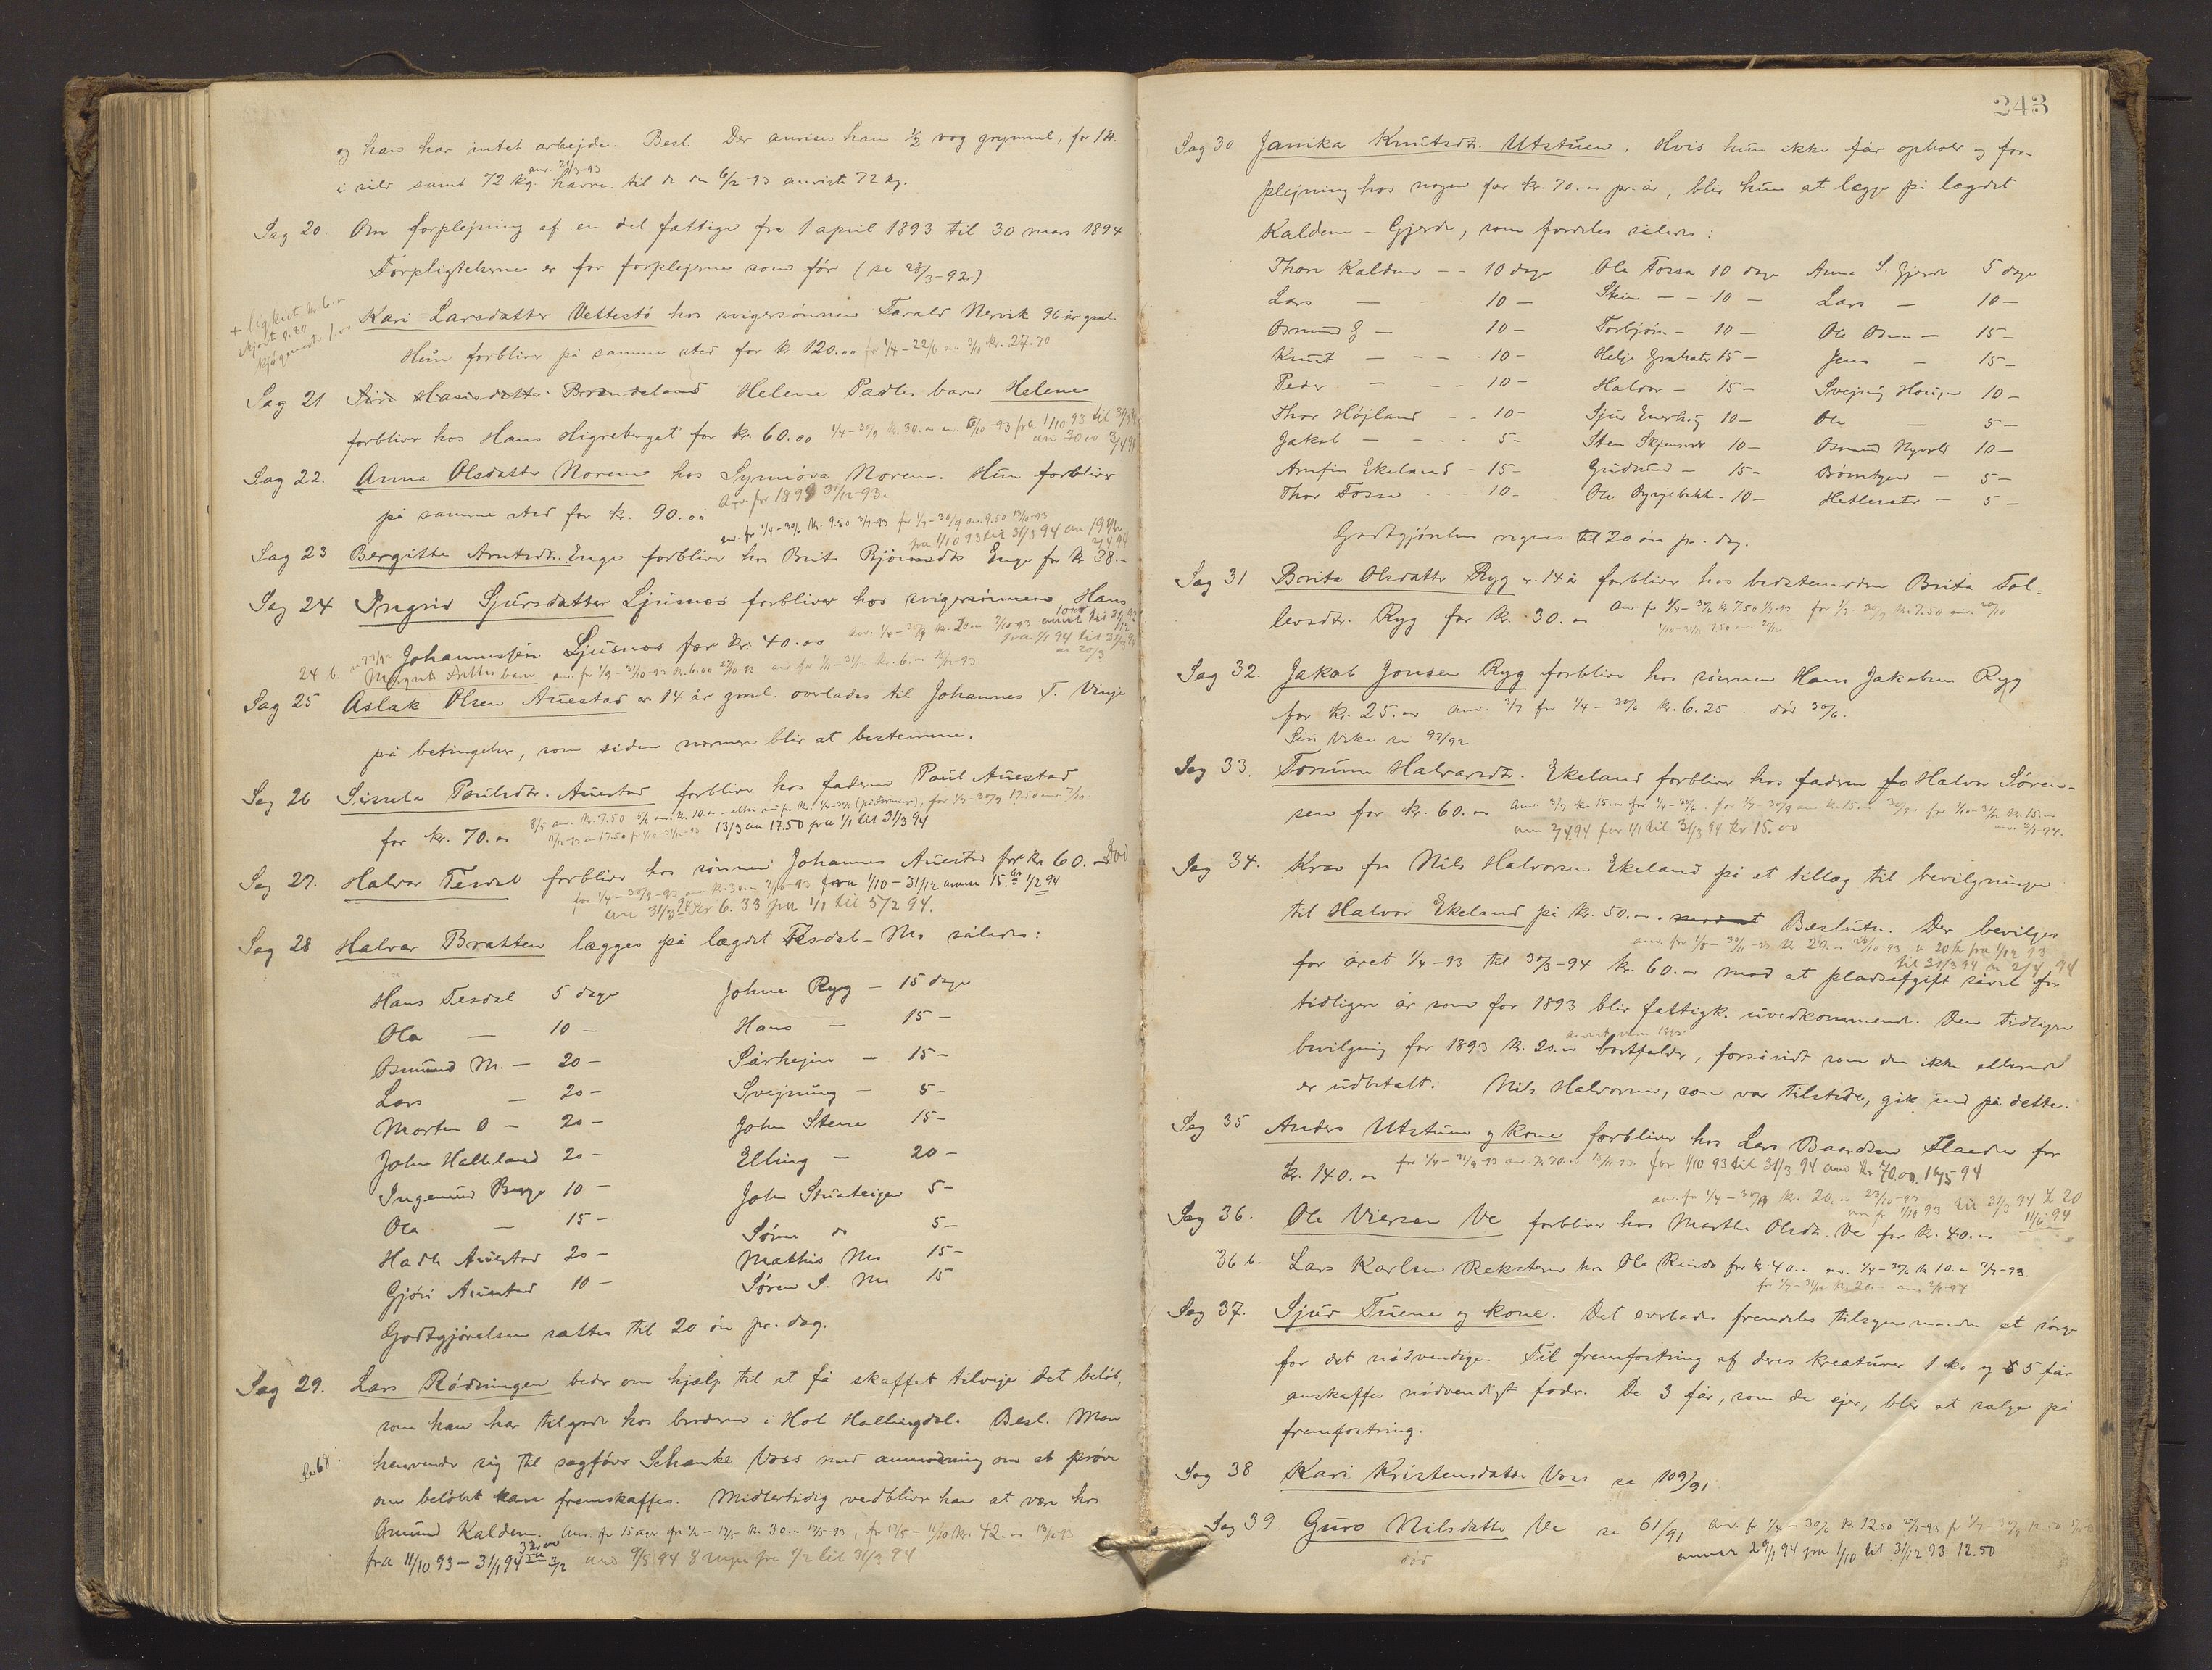 og han har intet arbejde. Besl. Der anvises ham ½ vog grynmel, for 1 kr.
anv. 21/3-93
i sild samt 72 kg. havre. til de den 6/2 93 anviste 72 kg.
Sag 20. Om forplejning af en del fattige fra 1 april 1893 til 30 mars 1894
Forpligtelserne er for forplejerne som før (se 28/3-92)
+ ligkiste kr 6.00
skjorte 0.80
Kari Larsdatter Vettestø hos svigersønnen Farald Nervik 96 år gml.
Hun forbliver på samme sted for kr. 120.00 for 1/4-22/6 kr. 27.70
Sag 21 Siri Hansdatter Brandeland Helene Padles barn Helene
forbliver hos Hans Higreberget for kr. 60.00 1/4-30/9 kr. 30.00 fra 1/10 93 til 31/3 94
an 30.00 3/4 94
Sag 22. Anna Olsdatter Norem hos Synnøva Norem. Hun forbliver
på samme sted for kr. 90.00 Anv. for 1893 31/12-93.
anv. fr 1/4-30/6 kr. 9.50 3/7-93 for 1/7-30/9 an. 9.50 13/10-93
fra 1/10 93 til 31/3 94 an 19 kr 2/4 94
Sag 23 Bergitte Arntsdtr. Enge forbliver hos Brita Bjørnsdtr Enge for kr 38.-
Sag 24 Ingrid Sjursdatter Ljusnos forbliver hos svigersønnen Hans
Johannesen Ljusnos for kr. 40.00 anv. 1/4-30/9 kr. 20.00 2/10 93
fra 1/1 94 til 31/3 94
24 b. Margrete barn an. fr 1/9-31/10-93 kr 6.00 27/10-93 anv. for 1/11-31/12 kr. 6.00
Sag 25 Aslak Olsen Auestad er 14 år gml. overlades til Johannes T. Vinje
på betingelser, som siden nærmere blir at bestemme.
Sag 26 Sissela Poulsdtr. Auestad forbliver hos faderen Poul Auestad
for kr. 70.00 8/5 anv. kr. 7.50 kr. 10.00 for 1/7-30/9 17.50
13/3 an 17.50 fra 1/1 til 31/3 94
Sag 27. Halvor Tesdal forbliver hos sønnen Johannes Auestad for kr. 60.00 død
for 1/4-30/9-93 an. kr. 30.00 fora 1/10-31/12 15.00 1/2 94
anv 31/3 94 kr 6.33 fra 1/1 til 5/2 94.
Sag 28 Halvor Bratten lægges på lægdet Tesdal-Mo således:
Hans Tesdal 5 dage Johne Ryg - 15 dage
Ola — 10 — Hans — 15 —
Osmund M. - 20 — Sarhejm — 15 —
Lars — 20 — Svejnung — 5 —
Morten O - 20 — John Stene 15 —
John Halleland 20 — Elling — 20 —
Ingemund Bygge 10 — John Struteigen 5 —
Ola — 15 — Søren do 5 —
Hadle Auestad 20 — Mathis Mo 15 —
Gjøri Auestad 10 — Søren S. Mo 15
Godtgjørelsen sættes til 20 øre pr. dag.
Sag 29. Lars Rødningen beder om hjælp til at få skaffet tilveje det beløb,
som han har tilgode hos broderen i Hol Hallingdal. Besl. Man
Se 68. henvender sig til sagfører Schanke Voss med anmodning om at prøve
om beløbet kan fremskaffes. Midlertidig vedbliver han at være hos
Amund Kaldem. Anv. for 15 uger fr 1/2-17/5 kr. 30.- 17/5-93, fr 17/5-11/10 kr. 42.00 13/10 93
fra 11/10 93 - 31/1 94 32,00 3/2 anv 9/5 94 8 uger fra 1/2 til 31/3 94
243
Sag 30 Janika Knutsdtr. Utstuen. Hvis hun ikke får ophold og for-
plejning hos nogen for kr. 70.00 pr. år, blir hun at lægge på lægdet
Kaldem - Gjerde, som fordeles således:
Thore Kaldem - - 10 dage Ola Fosse 10 dage Anna S. Gjerde 5 dage
Lars — - 10 — Stein — - 10 — Lars — 10 —
Osmund G — 10 — Torbjørn - 10 — Ole Osm — 15 —
Knut — - - 10 — Helje 15 — Jens — 15 —
Peder — - - 10 — Halvor - 15 — Svejnung Haugen 10 —
Thor Højland - - 10 — Sjur Enerhug 10 — Ole — 5 —
Jakob — - - 5 — Sten 10 — Osmund Nyvold 10 —
Arnfin Ekeland - 15 — Gudmund - 15 — 5 —
Thor Fosse 10 — Ole 10 — Hetleseter — 5 —
Godtgjørelsen regnes til 20 øre pr. dag.
Sag 31 Brita Olsdatter Ryg er 14 år forbliver hos bedstemoderen Brita Tol-
levsdtr. Ryg for kr. 30.00 Anv. fr 1/4-30/6 kr. 7.50 for 1/7-30/9 kr. 7.50
1/10-31/12 7.50
Sag 32. Jakob Jonsen Ryg forbliver hos sønnen Hans Jakobsen Ryg
for kr. 25.00 anv. 3/7 for 1/4-30/6 kr. 6.25. død 30/6.
Siri Vike se 92/92
Sag 33. Torunn Halvarsdtr. Ekeland forbliver hos faderen Halvor Søren-
sen for kr. 60.00 anv. 3/7 kr. 15.00 for 1/4-30/6. for 1/7-30/9 kr. 15.00 for 1/10-31/12 kr. 15.00
ann 2/4 94 for 1/1 til 31/3 94 kr 15.00
Sag 34. Krav fra Nils Halvorsen Ekeland på et tillæg til bevilgningen
til Halvor Ekeland på kr. 50.00. mod at Beslutn. Der bevilges
20 kr fra 1/12 93
til 31/3 94 2/4 94
for året 1/4-93 til 30/3-94 kr. 60.00 mod at pladsafgift såvel for
tidligere år som for 1893 blir fattigk. uvedkommende. Den tidligere
bevilgning for 1893 kr. 20.00 bortfalder, forsåvidt som den ikke allerede
er udbetalt. Nils Halvorsen, som var tilstede, gik ind på dette.
Sag 35 Anders Utstuen og kone forbliver hos Lars Baardsen Flaaden for
kr. 140.00 for 1/4-31/9-93 kr 70.00 for 1/10 93 til 31/3 94 anv kr 70.00.
anv. fr 1/4-30/9 kr. 20.00 23/10-93
1/10 93 til 31/3 94 kr 20
11/6 94
Sag 36. Ole Viersen Ve forbliver hos Marthe Olsdtr. Ve for kr. 40.00
36 b. Lars Karlsen Reksten hos Ole Rinde for kr 40.00 anv. 1/4-30/6 kr 10.00 3/7-93.
fr 1/7-31/12 kr. 20.-
Sag 37. Sjur Tuene og kone. Det overlades fremdeles tilsynsmanden at sørge
for det nødvendige. Til fremfostring af deres kreaturer 1 ko og 5 får
anskaffes nødvendigt foder. De 3 får, som de ejer, blir at sælge på
fremfostring.
Sag 38 Kari Kristensdatter Voss se 109/91
Sag 39 Guro Nilsdatter Ve se 61/91 anv. fr 1/4-30/6 kr. 12.50
død
29/1 94 fra 1/10 til 31/12 93 12.50